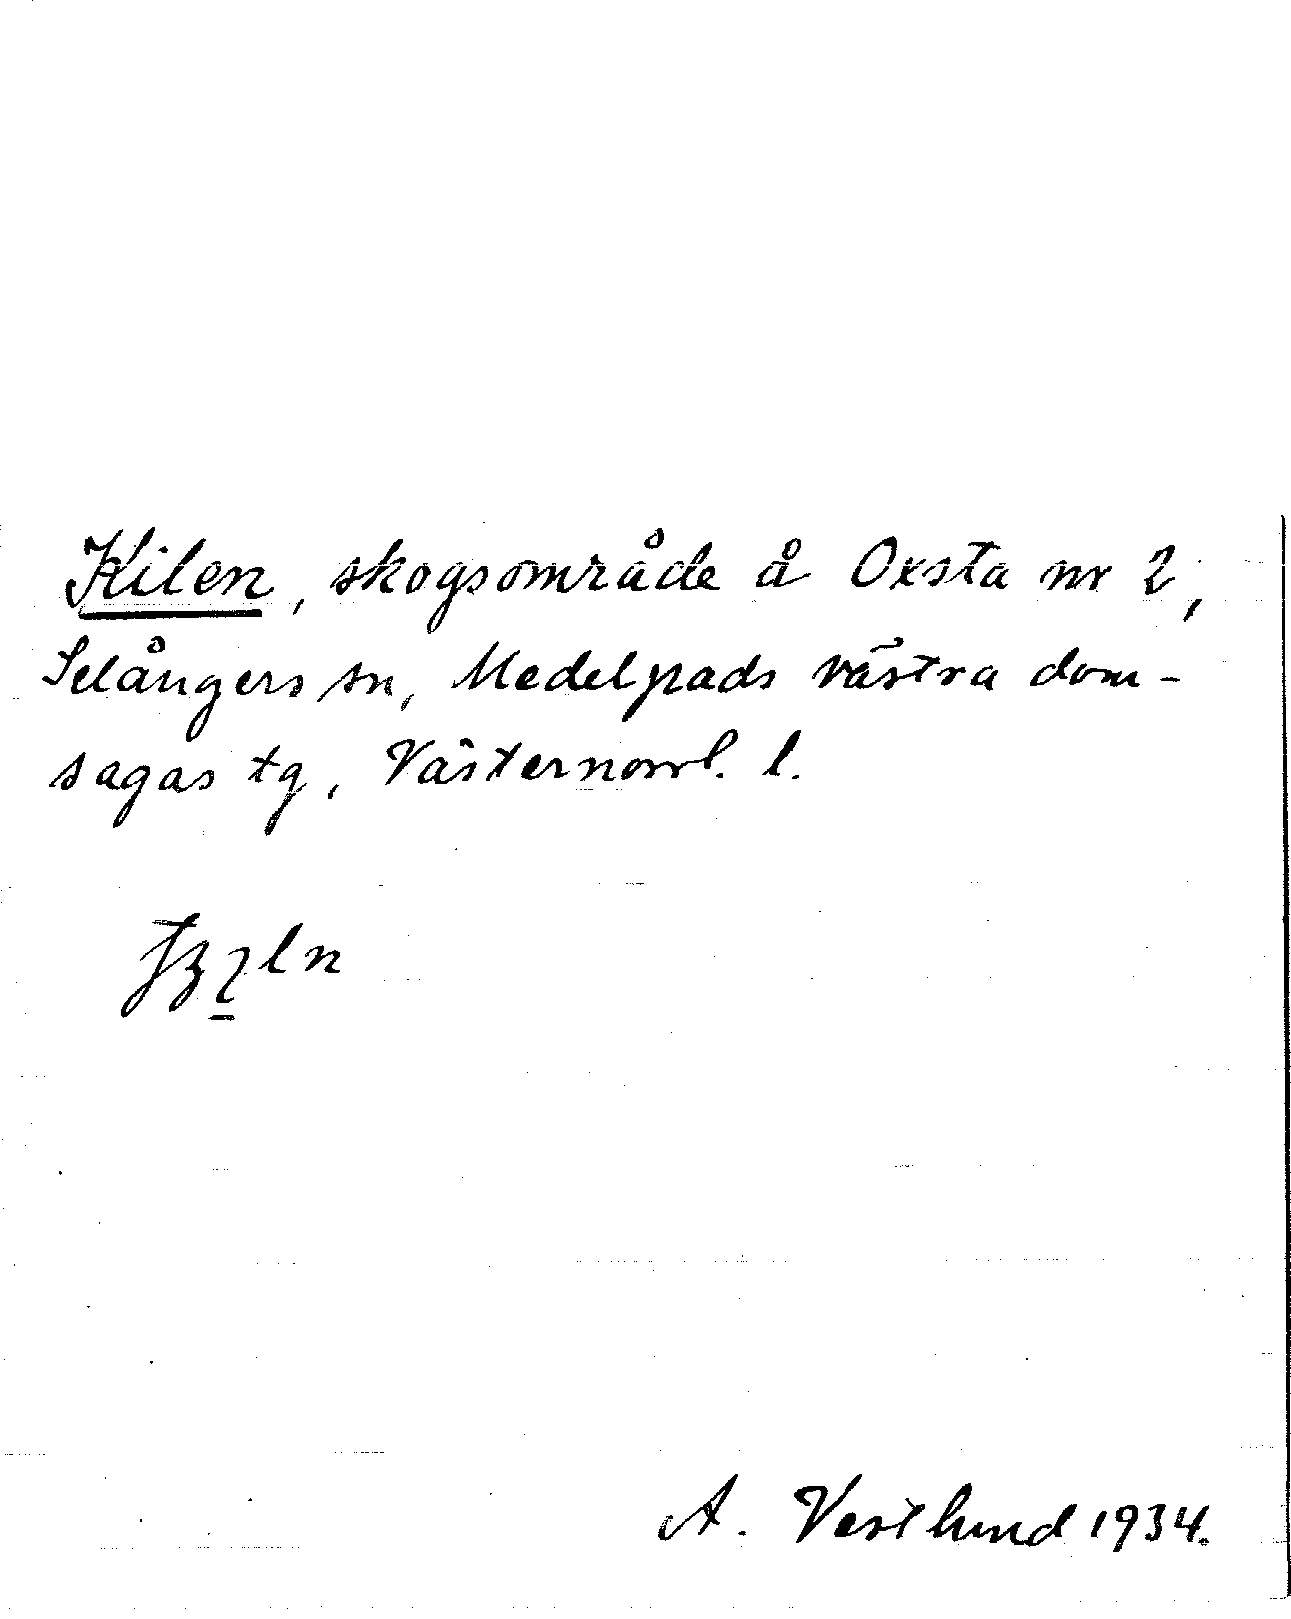 Kilen, skogsområde å Oxsta nr 2,
Selångers sn, Medelpads västra dom-
sagas tg, Västernorrl. l.
A. Vestlund 1934.